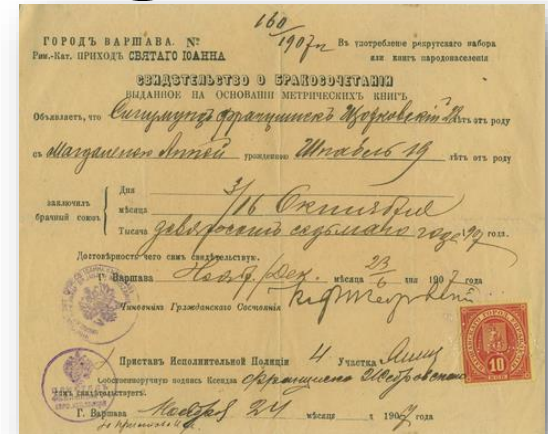 160
1907 г
ГОРОДЪ ВАРШАВА. №
Въ употребленіе рекрутскаго набора
Рим.-Кат. ПРИХОДЪ СВЯТАГО ІОАННА
или книгъ народонаселенія
СВИДѢТЕЛЬСТВО О БРАКОСОЧЕТАНІИ
ВЫДАННОЕ НА ОСНОВАНІИ МЕТРИЧЕСКИХЪ КНИГЪ
Объявляетъ, что Сигизмундъ Францишекъ 28 лѣтъ отъ роду
съ Магдаленою Анной урожденною Шнабель 19 лѣтъ отъ роду
заключилъ брачный союзъ
Дня 3/16
мѣсяца Октября
Тысяча девятьсотъ седьмаго года 1907 года.
Достовѣрность чего симъ свидѣтельствую.
Г. Варшава Нояб./Дек. мѣсяца 23/6 дня 1907 года
Чиновникъ Гражданскаго Состоянія
Приставъ Исполнительной Полиціи 4 Участка
собственноручную подпись Ксендза Францишка
симъ свидѣтельствуетъ.
Г. Варшава Ноября 24 мѣсяца 1907 года
10